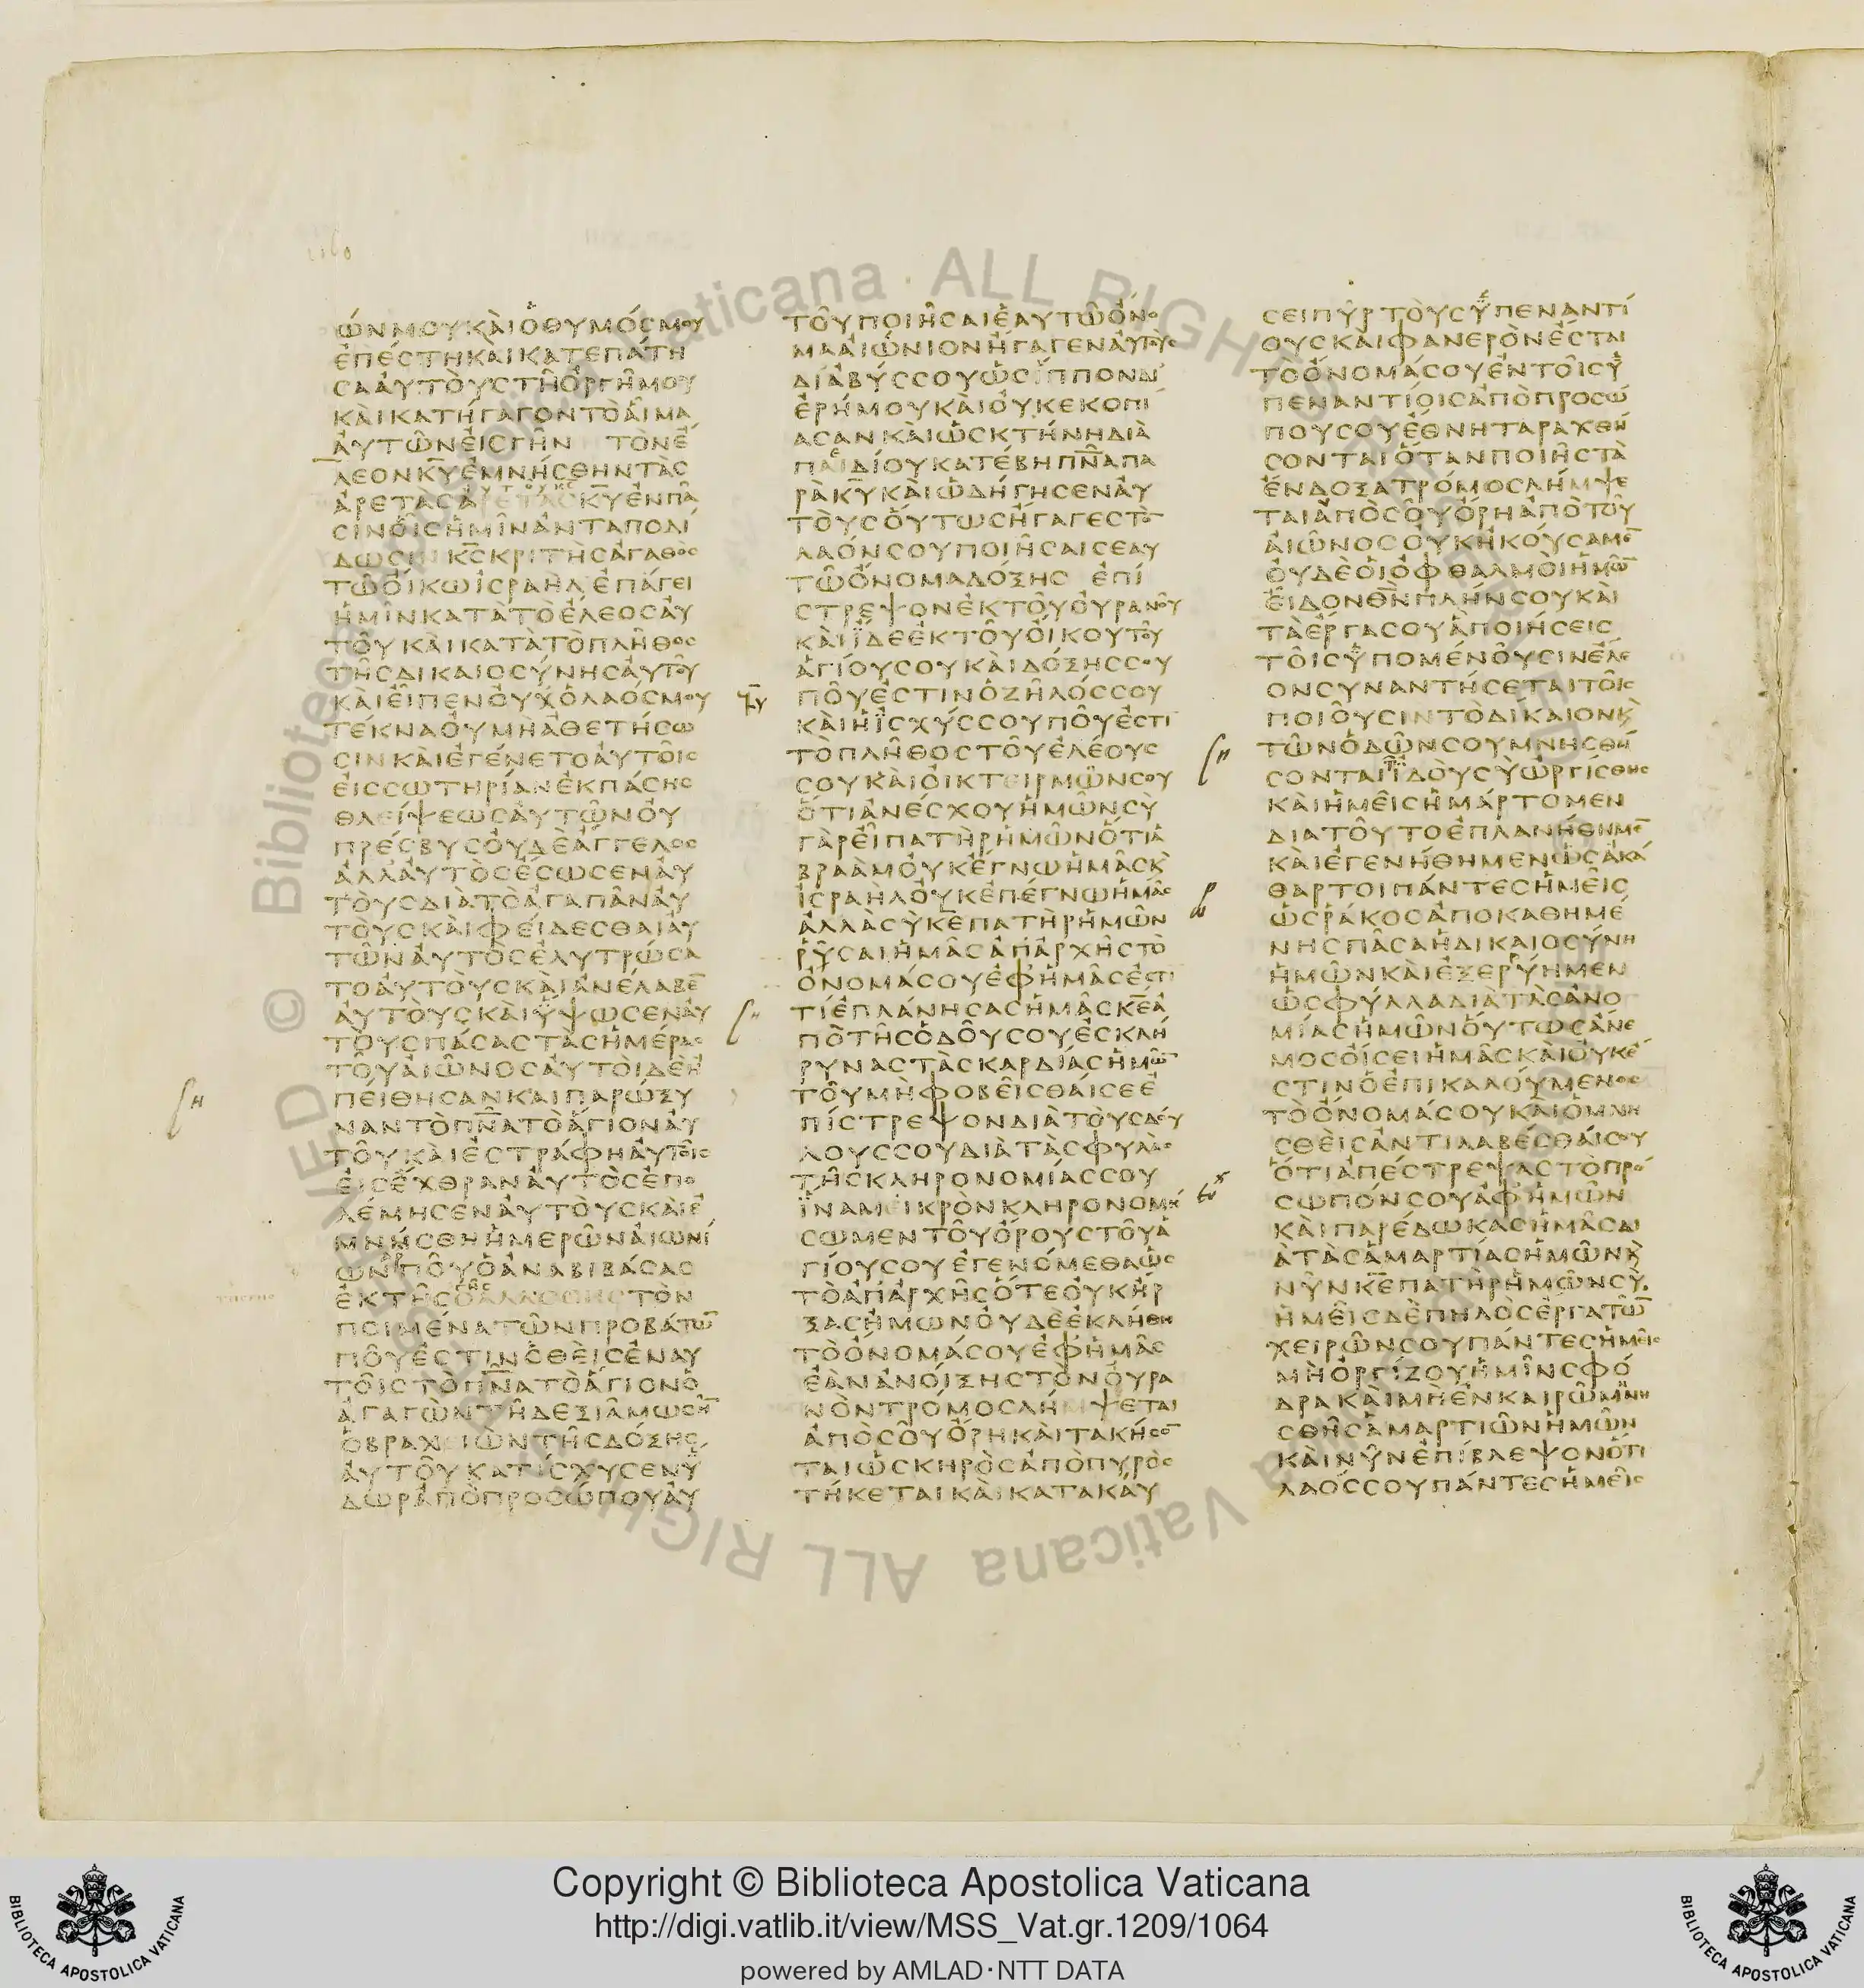 ὼΝΜΟΥΚΑὶΟΘΥΜΌCΜΟΥ
ἐΠΈCΤΗΚΑὶΚΑΤΕΠΆΤΗ
CΑΑΥΤΟΎCΤΗὈΡΓΗΜΟΥ
ΚΑὶΚΑΤΉΓΑΓΟΝΤΟΑἷΜΑ
ΑΥΤΩΝΕΙCΓΗΝ ΤΟΝΈ
ΛΕΟΝΚΥΕΜΝΗCΘΗΝΤΑC
ΑΡΕΤΑCΑΡΕΤΑCΚΥΕΝΠΑ
CΙΝΟΙCΗΜΙΝΑΝΤΑΠΟΔΙ
ΔΩCΙΝΚCΚΡΙΤΗCΑΓΑΘΟC
ΤΩΟΙΚΩΙCΡΑΗΛΕΠΑΓΕΙ
ΗΜΙΝΚΑΤΑΤΟΕΛΕΟCΑΥ
ΤΟΥΚΑΙΚΑΤΑΤΟΠΛΗΘΟC
ΤΗCΔΙΚΑΙΟCΥΝΗCΑΥΤΟΥ
ΚΑΙΕΙΠΕΝΟΥΧΟΛΑΟCΜΟΥ
ΤΕΚΝΑΟΥΜΗΑΘΕΤΗCΩ
CΙΝΚΑΙΕΓΕΝΕΤΟΑΥΤΟΙC
ΕΙCCΩΤΗΡΙΑΝΕΚΠΑCΗC
ΘΛΕΙΨΕΩCΑΥΤΩΝΟΥ
ΠΡΕCΒΥCΟΥΔΕΑΓΓΕΛΟC
ΑΛΛΑΥΤΟCΕCΩCΕΝΑΥ
ΤΟΥCΔΙΑΤΟΑΓΑΠΑΝΑΥ
ΤΟΥCΚΑΙΦΕΙΔΕCΘΑΙΑΥ
ΤΩΝΑΥΤΟCΕΛΥΤΡΩCΑ
ΤΟΑΥΤΟΥCΚΑΙΑΝΕΛΑΒΕ̅
ΑΥΤΟΥCΚΑΙΥΨΩCΕΝΑΥ
ΤΟΥCΠΑCΑCΤΑCΗΜΕΡΑC
ΤΟΥΑΙΩΝΟCΑΥΤΟΙΔΕΗ
ΠΕΙΘΗCΑΝΚΑΙΠΑΡΩΞΥ
ΝΑΝΤΟΠΝΑΤΟΑΓΙΟΝΑΥ
ΤΟΥΚΑΙΕCΤΡΑΦΗΑΥΤΟΙC
ΕΙCΕΧΘΡΑΝΑΥΤΟCΕΠΟ
ΛΕΜΗCΕΝΑΥΤΟΥCΚΑΙΕ
ΜΝΗCΘΗΗΜΕΡΩΝΑΙΩΝΙ
ΩΝΠΟΥΟΑΝΑΒΙΒΑCΑC
ΕΚΤΗC ΤΟΝ
ΠΟΙΜΕΝΑΤΩΝΠΡΟΒΑΤΩ̅
ΠΟΥΕCΤΙΝΟΘΕΙCΕΝΑΥ
ΤΟΙCΤΟΠΝΑΤΟΑΓΙΟΝΟ
ΑΓΑΓΩΝΤΗΔΕΞΙΑΜΩCΗ̅
ΟΒΡΑΧΕΙΩΝΤΗCΔΟΞΗC
ΑΥΤΟΥΚΑΤΙCΧΥCΕΝΥ
ΔΩΡΑΠΟΠΡΟCΩΠΟΥΑΥ
ΤΟΥΠΟΙΗCΑΙΕΑΥΤΩΟΝΟ
ΜΑΑΙΩΝΙΟΝΗΓΑΓΕΝΑΥΤΟΥC
ΔΙΑΒΥCCΟΥΩCΙΠΠΟΝΔΙ
ΕΡΗΜΟΥΚΑΙΟΥΚΕΚΟΠΙ
ΑCΑΝΚΑΙΩCΚΤΗΝΗΔΙΑ
ΠΑΙΔΙΟΥΚΑΤΕΒΗΠΝΑΠΑ
ΡΑΚΥΚΑΙΩΔΗΓΗCΕΝΑΥ
ΤΟΥCΟΥΤΩCΗΓΑΓΕCΤΟ̅
ΛΑΟΝCΟΥΠΟΙΗCΑΙCΕΑΥ
ΤΩΟΝΟΜΑΔΟΞΗC ΕΠΙ
CΤΡΕΨΟΝΕΚΤΟΥΟΥΡΑΝΟΥ
ΚΑΙΙΔΕΕΚΤΟΥΟΙΚΟΥΤΟΥ
ΑΓΙΟΥCΟΥΚΑΙΔΟΞΗCCΟΥ
ΠΟΥΕCΤΙΝΟΖΗΛΟCCΟΥ
ΚΑΙΗΙCΧΥCCΟΥΠΟΥΕCΤΙ
ΤΟΠΛΗΘΟCΤΟΥΕΛΕΟΥC
CΟΥΚΑΙΟΙΚΤΕΙΡΜΩΝCΟΥ
ΟΤΙΑΝΕCΧΟΥΗΜΩΝCΥ
ΓΑΡΕΙΠΑΤΗΡΗΜΩΝΟΤΙΑ
ΒΡΑΑΜΟΥΚΕΓΝΩΗΜΑCΚ
ΙCΡΑΗΛΟΥΚΕΠΕΓΝΩΗΜΑC
ΑΛΛΑCΥΚΕΠΑΤΗΡΗΜΩΝ
ΡΥCΑΙΗΜΑCΑΠΑΡΧΗCΤΟ
ΟΝΟΜΑCΟΥΕΦΗΜΑCΕCΤΙ
ΤΙΕΠΛΑΝΗCΑCΗΜΑCΚΕΑ
ΠΟΤΗCΟΔΟΥCΟΥΕCΚΛΗ
ΡΥΝΑCΤΑCΚΑΡΔΙΑCΗΜΩ̅
ΤΟΥΜΗΦΟΒΕΙCΘΑΙCΕΕ
ΠΙCΤΡΕΨΟΝΔΙΑΤΟΥCΔΟΥ
ΛΟΥCCΟΥΔΙΑΤΑCΦΥΛΑC
ΤΗCΚΛΗΡΟΝΟΜΙΑCCΟΥ
ΙΝΑΜΕΙΚΡΟΝΚΛΗΡΟΝΟΜΗ
CΩΜΕΝΤΟΥΟΡΟΥCΤΟΥΑ
ΓΙΟΥCΟΥΕΓΕΝΟΜΕΘΑΩC
ΤΟΑΠΑΡΧΗCΟΤΕΟΥΚΗΡ
ΞΑCΗΜΩΝΟΥΔΕΕΚΛΗΘΗ
ΤΟΟΝΟΜΑCΟΥΕΦΗΜΑC
ΕΑΝΑΝΟΙΞΗCΤΟΝΟΥΡΑ
ΝΟΝΤΡΟΜΟCΛΗΜΨΕΤΑΙ
ΑΠΟCΟΥΟΡΗΚΑΙΤΑΚΗCΟ̅
ΤΑΙΩCΚΗΡΟCΑΠΟΠΥΡΟC
ΤΗΚΕΤΑΙΚΑΙΚΑΤΑΚΑΥ
CΕΙΠΥΡΤΟΥCΥΠΕΝΑΝΤΙ
ΟΥCΚΑΙΦΑΝΕΡΟΝΕCΤΑΙ
ΤΟΟΝΟΜΑCΟΥΕΝΤΟΙCΥ
ΠΕΝΑΝΤΙΟΙCΑΠΟΠΡΟCΩ
ΠΟΥCΟΥΕΘΝΗΤΑΡΑΧΘΗ
CΟΝΤΑΙΟΤΑΝΠΟΙΗCΤΑ
ΕΝΔΟΞΑΤΡΟΜΟCΛΗΜΨΕ
ΤΑΙΑΠΟCΟΥΟΡΗΑΠΟΤΟΥ
ΑΙΩΝΟCΟΥΚΗΚΟΥCΑΜΕ̅
ΟΥΔΕΟΙΟΦΘΑΛΜΟΙΗΜΩ̅
ΕΙΔΟΝΘΝΠΛΗΝCΟΥΚΑΙ
ΤΑΕΡΓΑCΟΥΑΠΟΙΗCΕΙC
ΤΟΙCΥΠΟΜΕΝΟΥCΙΝΕΛΕ
ΟΝCΥΝΑΝΤΗCΕΤΑΙΤΟΙC
ΠΟΙΟΥCΙΝΤΟΔΙΚΑΙΟΝΚ
ΤΩΝΟΔΩΝCΟΥΜΝΗCΘΗ
CΟΝΤΑΙΙΔΟΥCΥΩΡΓΙCΘΗC
ΚΑΙΗΜΕΙCΗΜΑΡΤΟΜΕΝ
ΔΙΑΤΟΥΤΟΕΠΛΑΝΗΘΗΜΕ̅
ΚΑΙΕΓΕΝΗΘΗΜΕΝΩCΑΚΑ
ΘΑΡΤΟΙΠΑΝΤΕCΗΜΕΙC
ΩCΡΑΚΟCΑΠΟΚΑΘΗΜΕ
ΝΗCΠΑCΑΗΔΙΚΑΙΟCΥΝΗ
ΗΜΩΝΚΑΙΕΞΕΡΥΗΜΕΝ
ΩCΦΥΛΛΑΔΙΑΤΑCΑΝΟ
ΜΙΑCΗΜΩΝΟΥΤΩCΑΝΕ
ΜΟCΟΙCΕΙΗΜΑCΚΑΙΟΥΚΕ
CΤΙΝΟΕΠΙΚΑΛΟΥΜΕΝΟC
ΤΟΟΝΟΜΑCΟΥΚΑΙΟΜΝΗ
CΘΕΙCΑΝΤΙΛΑΒΕCΘΑΙCΟΥ
ΟΤΙΑΠΕCΤΡΕΨΑCΤΟΠΡΟ
CΩΠΟΝCΟΥΑΦΗΜΩΝ
ΚΑΙΠΑΡΕΔΩΚΑCΗΜΑCΔΙ
ΑΤΑCΑΜΑΡΤΙΑCΗΜΩΝΚ
ΝΥΝΚΕΠΑΤΗΡΗΜΩΝCΥ
ΗΜΕΙCΔΕΠΗΛΟCΕΡΓΑΤΩ̅
ΧΕΙΡΩΝCΟΥΠΑΝΤΕCΗΜΕΙC
ΜΗΟΡΓΙΖΟΥΗΜΙΝCΦΟ
ΔΡΑΚΑΙΜΗΕΝΚΑΙΡΩΜΝΗ
CΘΗCΑΜΑΡΤΙΩΝΗΜΩΝ
ΚΑΙΝΥΝΕΠΙΒΛΕΨΟΝΟΤΙ
ΛΑΟCCΟΥΠΑΝΤΕCΗΜΕΙC
Copyright © Biblioteca Apostolica Vaticana
http://digi.vatlib.it/view/MSS_Vat.gr.1209/1064
powered by AMLAD·NTT DATA
BIBLIOTECA APOSTOLICA VATICANA
BIBLIOTECA APOSTOLICA VATICANA